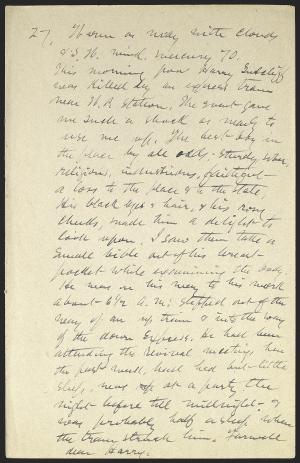 27, Warm on ready with clouds
& S. W. wind. mercury 70.
This morning poor Harry Sutcliff
was killed by an express train
near W. P. Station. The event gave
me such a shock as nearly to
use me up. The best boy in
the place by all odds – sturdy, sober,
religious, industrious,
a loss to the place & to the state.
His black eyes & hair, & his rosy
cheeks, made him a delight to
look upon. I saw them take a
small bible out of his breast
pocket while examining the body.
He was on his way to his work
about 6½ a.m: stepped out of the
way of an up train & into the way
of the down Express. He had been
attending the revival meetings here
the past week, had had but little
sleep, was up at a party the
night before till midnight – &
was probably half asleep when
the train struck him. Farewell
dear Harry.